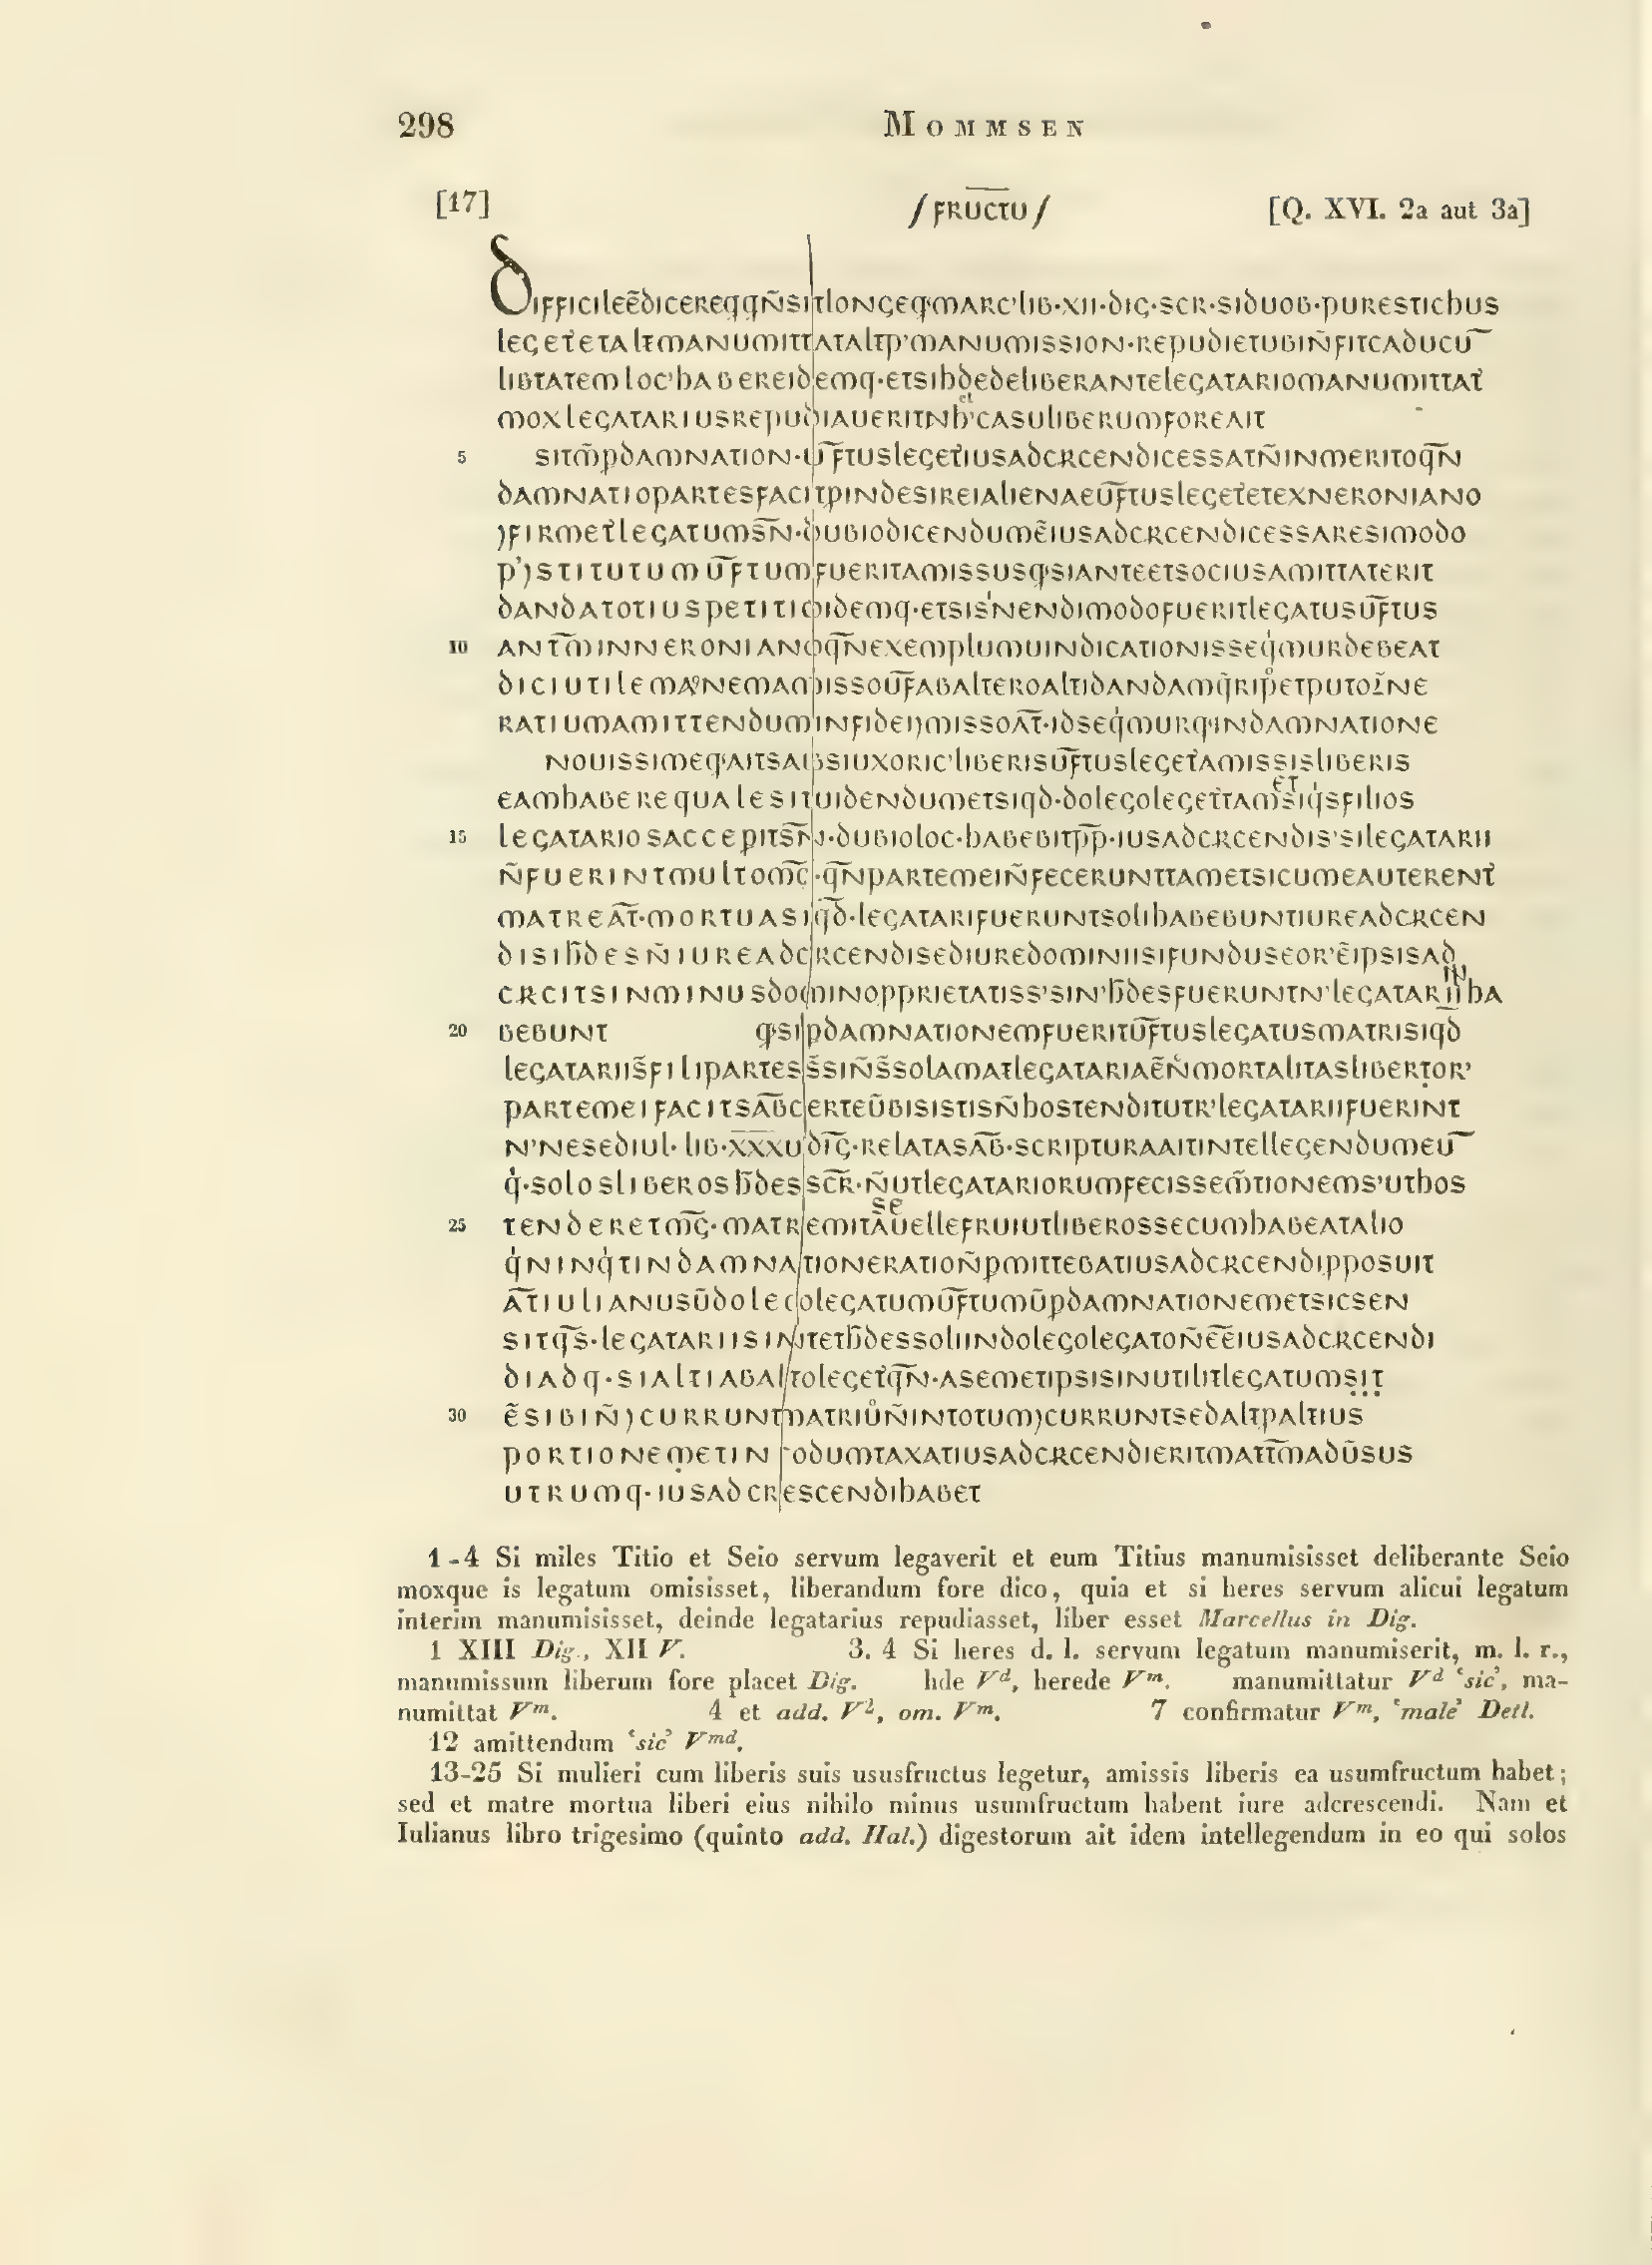 298 MOMMSEN
[17] /FRŪCTU/ [Q. XVI. 2a aut 3a]
DIFFICILEĒDICEREqqN̄SITLONGEq'MARC'LIB·XII·DIG·SCR·SIDUOB·PURESTICHUS
LEGETETALTMANUMITTATALTP'MANUMISSION·REPUDIETUBIN̄FITCADUCU̅
LIBTATEMLOC'HABEREIDEMq·ETSIHDEDELIBERANTELEGATARIOMANUMITTAT
et
MOXLEGATARIUSREPUDIAUERITNH'CASULIBERUMFOREAIT
5 SITM̄PDAMNATION·ŪF̄TUSLEGETIUSADCRCENDICESSATN̄INMERITOqN̄
DAMNATIOPARTESFACITPINDESIREIALIENAEŪF̄TUSLEGETETEXNERONIANO
)FIRMETLEGATUMSN̄·DUBIODICENDUMĒIUSADCRCENDICESSARESIMODO
P')STITUTUMŪF̄TUMFUERITAMISSUSq'SIANTEETSOCIUSAMITTATERIT
DANDATOTIUSPETITIOIDEMq·ETSIS'NENDIMODOFUERITLEGATUSŪF̄TUS
10 ANTM̄INNERONIANOqN̄EXEMPLUMUINDICATIONISSEqMURDEBEAT
DICIUTILEMANEMADISSOŪF̄ABALTEROALTIDANDAMqRIPETPUTOINE
RATIUMAMITTENDUMINFIDEI)MISSOAT̄·IDSEqMURq'INDAMNATIONE
NOUISSIMEq'AITSABSIUXORIC'LIBERISŪF̄TUSLEGETAMISSISLIBERIS
ET
EAMHABEREQUALESITUIDENDUMETSIqD·DOLEGOLEGETTAMSIqSFILIOS
15 LEGATARIOSACCEPITSN̄·DUBIOLOC·HABEBITPP̄·IUSADCRCENDIS'SILEGATARII
N̄FUERINTMULTOMḠ·qN̄PARTEMEIN̄FECERUNTTAMETSICUMEAUTERENT
MATREAT̄·MORTUASIqD̄·LEGATARIFUERUNTSOLIHABEBUNTIUREADCRCEN
DISIH̄DESN̄IUREADCRCENDISEDIUREDOMINIISIFUNDUSEOR'ĒIPSISAD
IN
CRCITSINMINUSDOMINOPPRIETATISS'SIN'H̄DESFUERUNTN'LEGATARIIHA
20 BEBUNT q'SIPDAMNATIONEMFUERITŪF̄TUSLEGATUSMATRISIqD̄
LEGATARIIS̄FILIPARTESS̄SIN̄S̄SOLAMATLEGATARIAĒN̄MORTALITASLIBERTOR'
PARTEMEIFACITSAB̄CERTEŪBISISTISN̄HOSTENDITUTR'LEGATARIIFUERINT
N'NESEDIUL·LIB·X̅X̅X̅UDIḠ·RELATASAB̄·SCRIPTURAAITINTELLEGENDUMEU̅
q·SOLOSLIBEROSH̄DESSCR̄·N̄UTLEGATARIORUMFECISSEM̄TIONEMS'UTHOS
SE
25 TENDERETMḠ·MATREMITAUELLEFRUIUTLIBEROSSECUMHABEATALIO
qNINqTINDAMNATIONERATION̄PMITTEBATIUSADCRCENDIPPOSUIT
AT̄IULIANUSŪDOLEGOLEGATUMŪF̄TUMŪPDAMNATIONEMETSICSEN
SITqS̄·LEGATARIISINTETH̄DESSOLIINDOLEGOLEGATON̄ĒĒIUSADCRCENDI
DIADq·SIALTIABALTOLEGETqN̄·ASEMETIPSISINUTILITLEGATUMSIT
30 ĒSIBIN̄)CURRUNTMATRIUN̄INTOTUM)CURRUNTSEDALTPALTIUS
PORTIONEMETIN ODUMTAXATIUSADCRCENDIERITMATTM̄ADŪSUS
UTRUMq·IUSADCRESCENDIHABET
1-4 Si miles Titio et Seio servum legaverit et eum Titius manumisisset deliberante Seio
moxque is legatum omisisset, liberandum fore dico, quia et si heres servum alicui legatum
interim manumisisset, deinde legatarius repudiasset, liber esset Marcellus in Dig.
1 XIII Dig., XII V. 3. 4 Si heres d. l. servum legatum manumiserit, m. l. r.,
manumissum liberum fore placet Dig. hde Vd, herede Vm. manumittatur Vd ‘sic’, ma-
numittat Vm. 4 et add. V2, om. Vm. 7 confirmatur Vm, ‘male’ Detl.
12 amittendum ‘sic’ Vmd.
13-25 Si mulieri cum liberis suis ususfructus legetur, amissis liberis ea usumfructum habet;
sed et matre mortua liberi eius nihilo minus usumfructum habent iure adcrescendi. Nam et
Iulianus libro trigesimo (quinto add. Hal.) digestorum ait idem intellegendum in eo qui solos